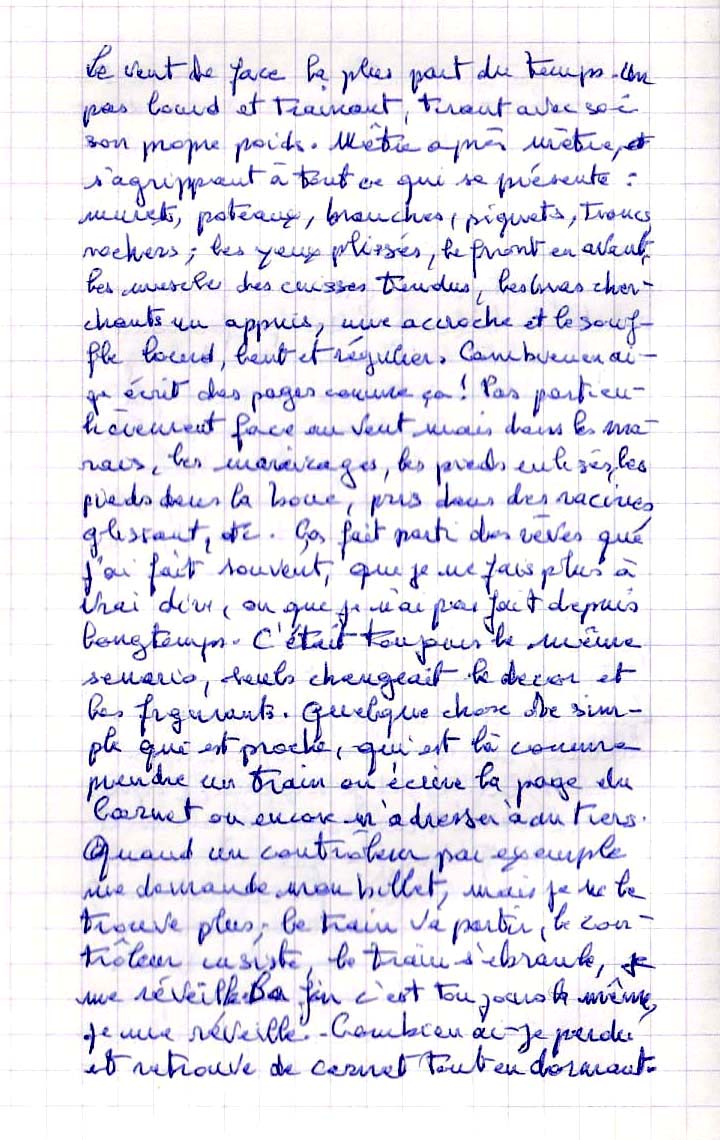 Le vent de face la plus part du temps. Un
pas lourd et trainant, tirant avec soi
son propre poids. Mètre après mètre, et
s'agrippant à tout ce qui se présente :
murets, poteaux, branches, piquets, troncs
rochers ; les yeux plissés, le front en avant,
les muscle des cuisses tendus, les bras cher-
chants un appuis, une accroche et le souf-
fle lourd, lent et régulier. Combien en ai-
je écrit des pages comme ça ! Pas particu-
lièrement face au vent mais dans les ma-
rais, les marécages, les pieds enlisés, les
pieds dans la boue, pris dans des racines
glissant, etc. Ça fait parti des rêves que
j'ai fait souvent, que je ne fais plus à
vrai dire, ou que je n'ai pas fait depuis
longtemps. C'était toujours le même
senario, seuls changeait le decor et
les figurants. Quelque chose de sim-
ple qui est proche, qui est là comme
prendre un train ou écrire la page du
carnet ou encore m'adresser à du tiers.
Quand un contrôleur par exemple
me demande mon billet, mais je ne le
trouve plus, le train va partir, le con-
trôleur insiste, le train s'ebranle, je
me réveille. La fin c'est toujours la même,
je me réveille. - Combien ai-je perdu
et retrouve de carnet tout en dormant.